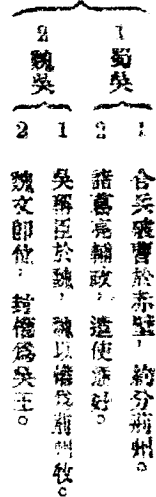 1 蜀吳
1 合兵破曹於赤壁，約分荊州。
2 諸葛亮輔政，遣使修好。
2 魏吳
1 吳稱臣於魏，魏以權爲荊州牧。
2 魏文即位，封權爲吳王。